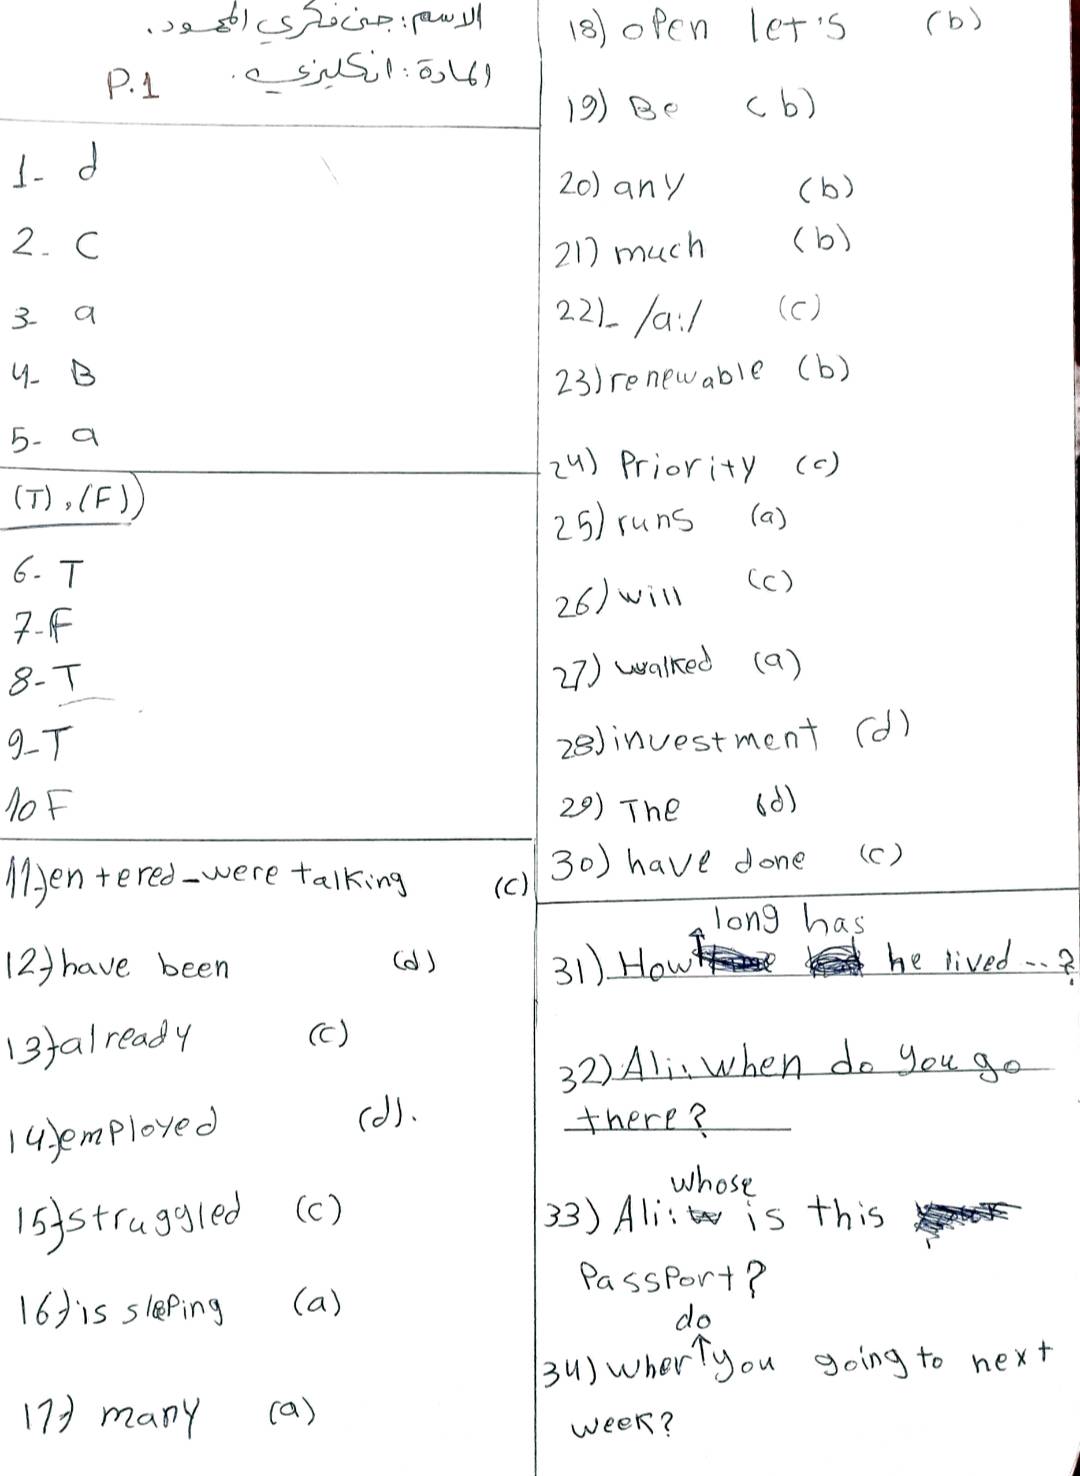 الاسم: جنى فكري المحمود.
المادة: انكليزي.
P.1
1- d
2- C
3- a
4- B
5- a
(T), (F))
6- T
7- F
8- T
9- T
10 F
11) entered - were talking (c)
12) have been (d)
13) already (c)
14) employed (d).
15) struggled (c)
16) is sleping (a)
17) many (a)
18) open let's (b)
19) Be (b)
20) any (b)
21) much (b)
22)- /a:/ (c)
23) renewable (b)
24) Priority (c)
25) runs (a)
26) will (c)
27) walked (a)
28) investment (d)
29) The (d)
30) have done (c)
31) How long has he lived ..?
32) Ali: when do you go
there?
33) Ali: whose is this
Passport?
34) wher do you going to next
week?